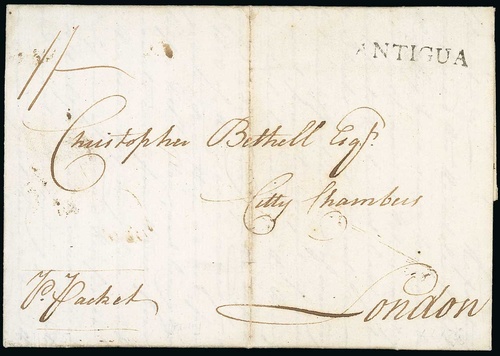 1/
ANTIGUA
Christopher Bethell Esqr.
Citty Chambers
London
Pr. Packet